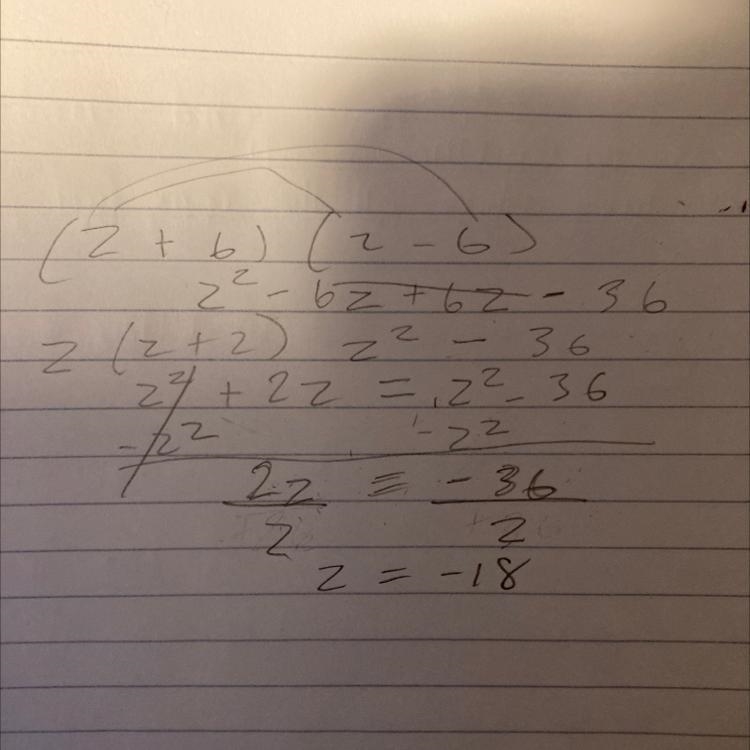 (z + 6) (z - 6)
z² - 6z + 6z - 36
z (z + 2) z² - 36
z² + 2z = z² - 36
- z² - z²
2z = -36
2 2
z = -18